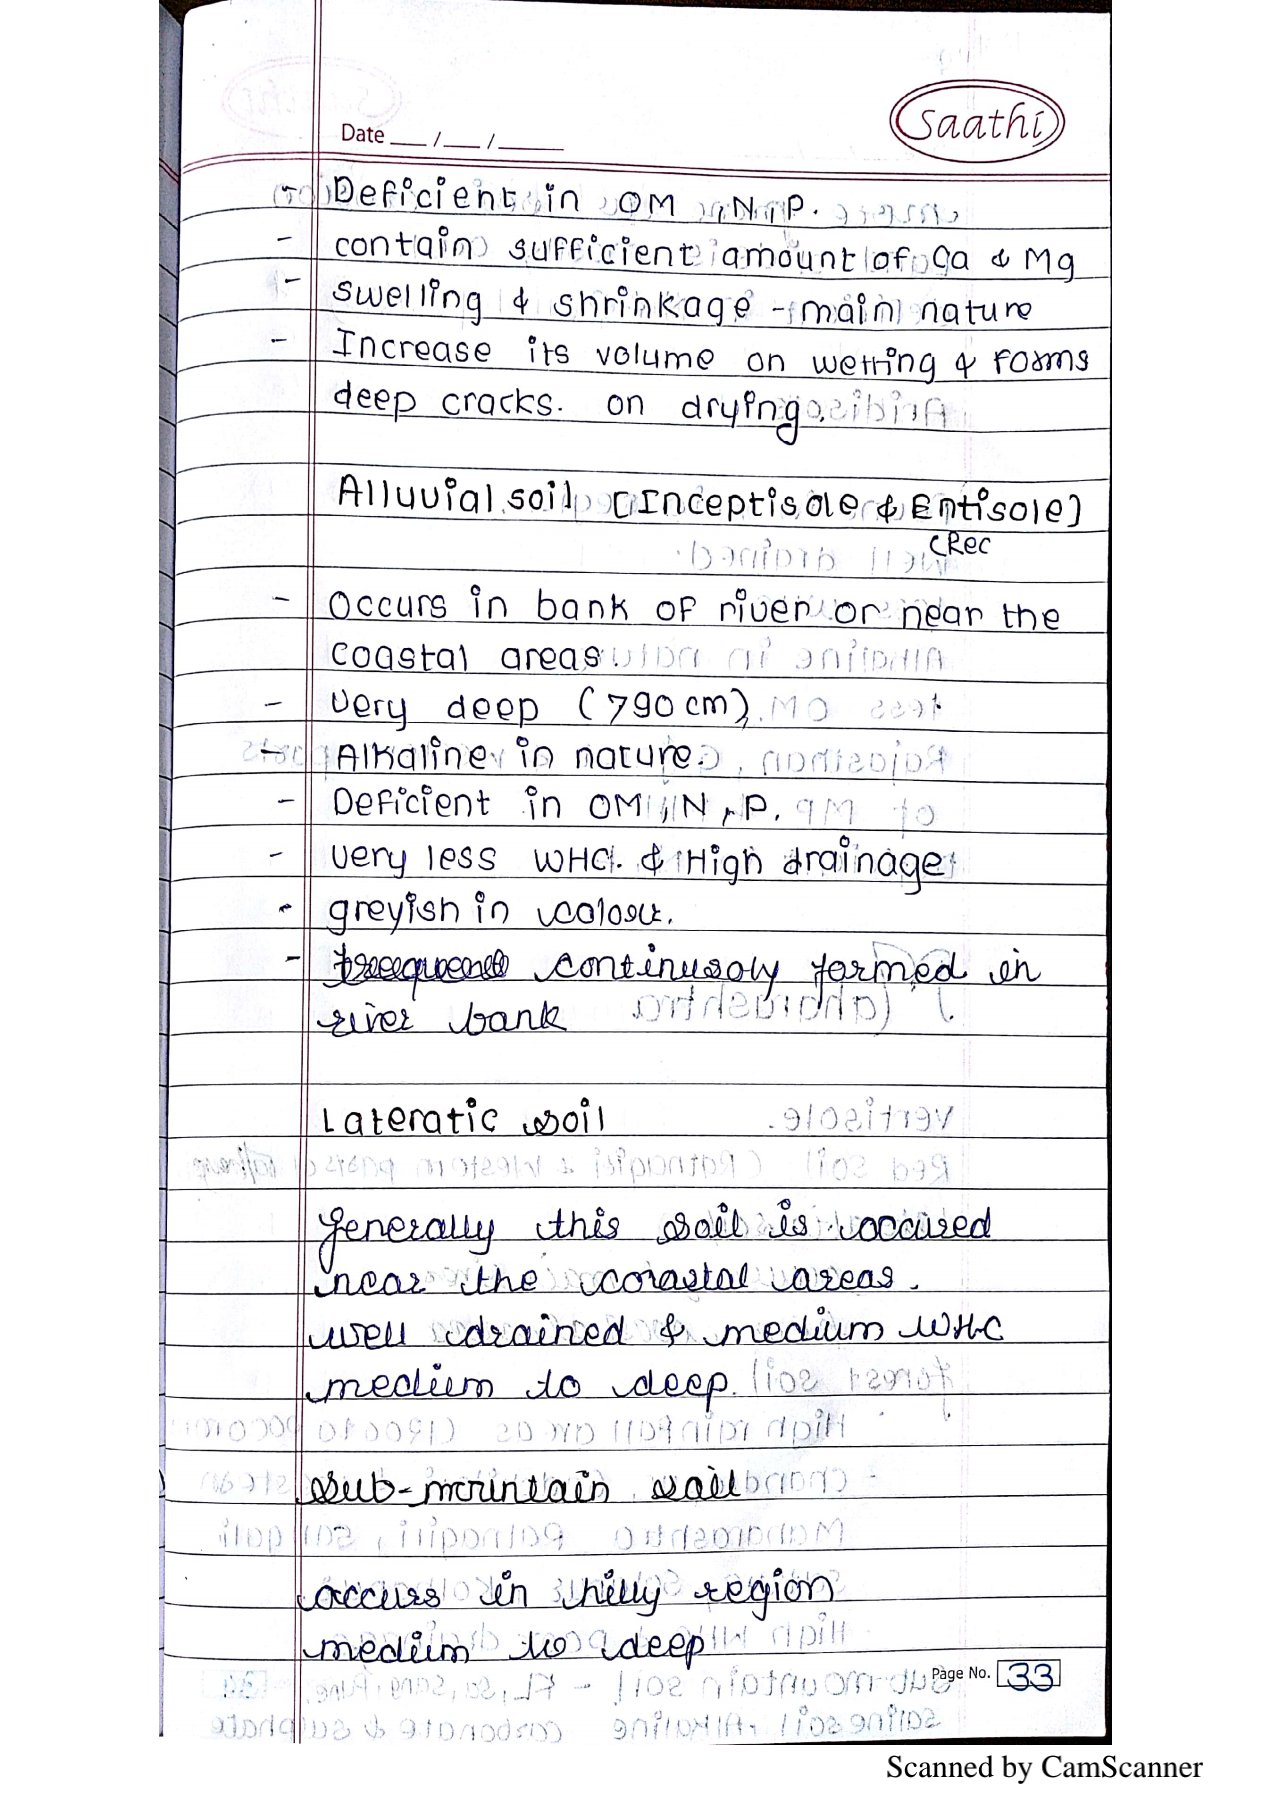 Saathi
Date __/__/____
- Deficient in OM, N, P.
- contain sufficient amount of Ca & Mg
- swelling & shrinkage - main nature
- Increase its volume on wetting & forms
deep cracks. on drying.
Alluvial soil [Inceptisole & Entisole]
(Rec
- Occurs in bank of river or near the
coastal areas
- very deep (>90cm)
- Alkaline in nature.
- Deficient in OM, N, P.
- very less WHC. & High drainage
- greyish in colour.
- continusoly formed in
river bank
Lateratic soil
generally this soil is occured
near the coastal areas.
well drained & medium WHC
medium to deep.
Sub-mountain soil
occurs in hilly region
medium to deep
Page No. 33
Scanned by CamScanner